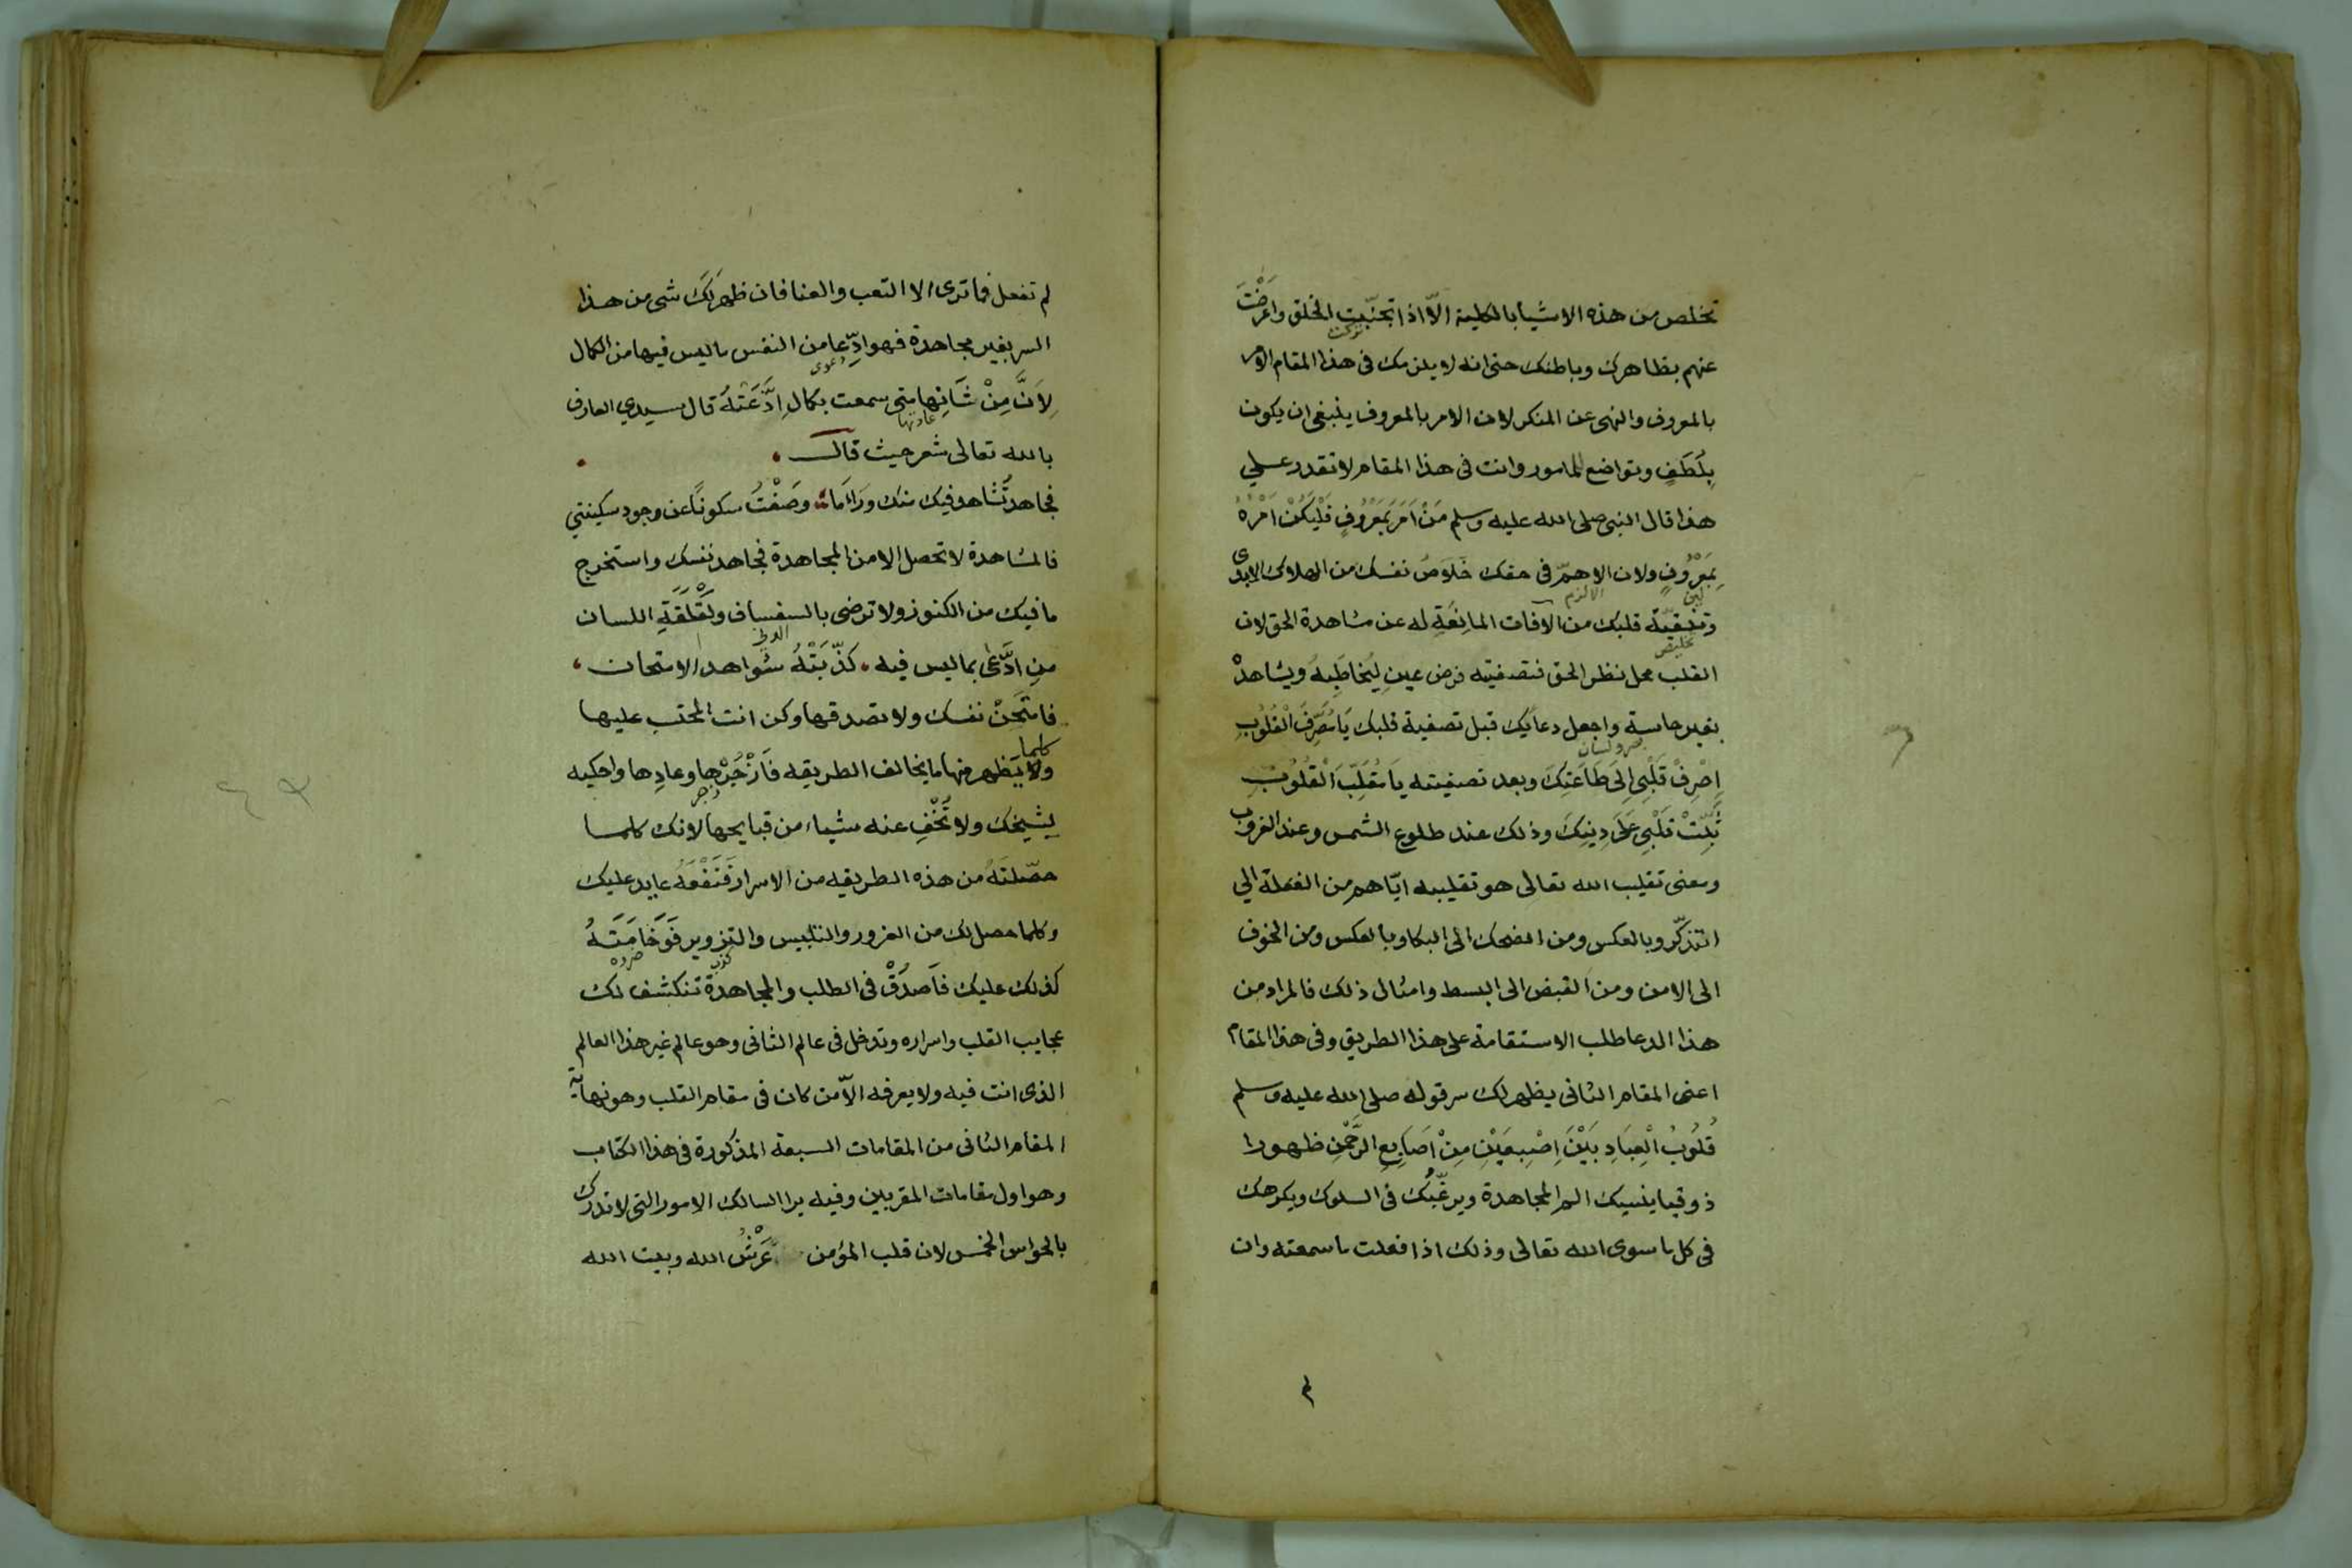 تخلص من هذه الاشيأ بالكلية الاّ اذا تجنّبت الخلق واعرَضْتَ
تركت
عنهم بظاهرك وباطنك حتى انه لا يلزمك فى هذا المقام الامر
بالمعروف والنهى عن المنكر لان الامر بالمعروف ينبغى ان يكون
بِلُطفٍ وبتواضع للمامور وانت فى هذا المقام لا تقدر على
هذا قال النبى صلى الله عليه وسلم مَنْ اَمَرَ بَمَعْرُوفٍ فَلْيَكُنْ اَمْرُهُ
بَمَعْرُوفٍ ولان الاهمّ فى حقك خَلَاصُ نفسك من الهلاك الابدى
الالزم
وتنقيّة قلبك من الآفات المانِعَةِ له عن مشاهدة الحق لان
تخليص
القلب محل نظر الحق فتصفيته فرض عينٍ ليُخاطَبِهُ ويشاهدْ
بغير حاسة واجعل دعايَك قبل تصفية قلبك يَا مُصَرِّفَ الْقُلُوبِ
اِصْرِفْ قَلْبِى اِلىَ طَاعَتِكَ وبعد تصفيته يَا مُقَلِّبَ الْقُلُوبِ
ثَبِّتْ قَلْبِى عَلىَ دِينِكَ وذلك عند طلوع الشمس وعند الغروب
ومعنى تقليب الله تعالى هو تقليبه ايّاهم من الغفلة الى
التذكّر وبالعكس ومن الضحك الى البكا وبالعكس ومن الخوف
الى الامن ومن القبض الى البسط وامثال ذلك فالمراد من
هذا الدعا طلب الاستقامة على هذا الطريق وفى هذا المقام
اعنى المقام الثانى يظهر لك سر قوله صلى الله عليه وسلم
قُلُوبُ الْعِبَادِ بَيْنَ اِصْبِعَيْنِ مِنْ اَصَابِعِ الرَّحْمنِ ظهورا
ذوقيا ينسيك الم المجاهدة ويرغّبُك فى السلوك ويكرهك
فى كل ما سوى الله تعالى وذلك اذا فعلت ما سمعته وان
لم
لم تفعل فما ترى الا التعب والعنا فان ظهر لَكَ شى من هذا
السر بغير مجاهدة فهو ادِّعا من النفس ما ليس فيها من الكمال
دعوى
لِاَنَّ مِنْ شَانِها متى سمعت بكمالٍ اِدَّعَتْهُ قال سيدي العارف
عادتها
بالله تعالى شعر حيث قال
فجاهد تُشاهد فيك منك ورَاءَ مَا وصَفْتُ سكونًا عن وجود سكينتي
فالمشاهدة لا تحصل الا من المجاهدة فجاهد نفسك واستخرج
ما فيك من الكنوز ولا ترضى بالسفساف ولَقْلَقَةِ اللسان
منِ ادَّعى بما ليس فيه كذّبَتْهُ شواهد الامتحان
فامتَحِنْ نفسك ولا تصدقها وكن انت المحتسب عليها
كلما
ولا يَظهر منها ما يخالف الطريقه فَازْجُرْها وعادِها واحكيه
زجر
لشيخك ولا تُخْفِ عنه شياء من قبايحها لانك كلما
حصّلتَهُ من هذه الطريقه من الاسرار فَنَفْعُهُ عايد عليك
وكلما حصل لك من الغرور والتلبيس والتزوير فَوَخَامَتَهُ
كذلك عليك فَاَصدُقْ فى الطلب والمجاهدة تنكشف لك
عجايب القلب واسراره وتدخل فى عالم الثانى وهو عالم غير هذا العالم
الذى انت فيه ولا يعرفه الاّ من كان فى مقام القلب وهو نهاية
المقام الثانى من المقامات السبعة المذكورة فى هذا الكتاب
وهو اول مقامات المقربين وفيه يرا السالك الامور التى لا تدرك
بالحواس الخمس لان قلب المؤمن عَرْشُ الله وبيت الله